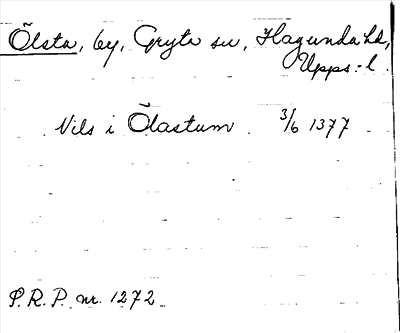 Õlsta, by, Gryta sn, Hagunda hd,
Upps. l.
Nils i Õlastum 3/6 1377
P.R.P. nr. 1272